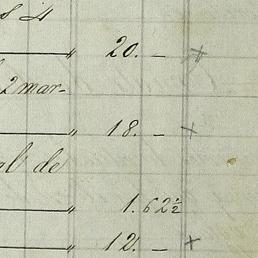 s 4
" 20. — +
2 mar-
" 18. — +
al de
" 1. 62½
" 12. — +